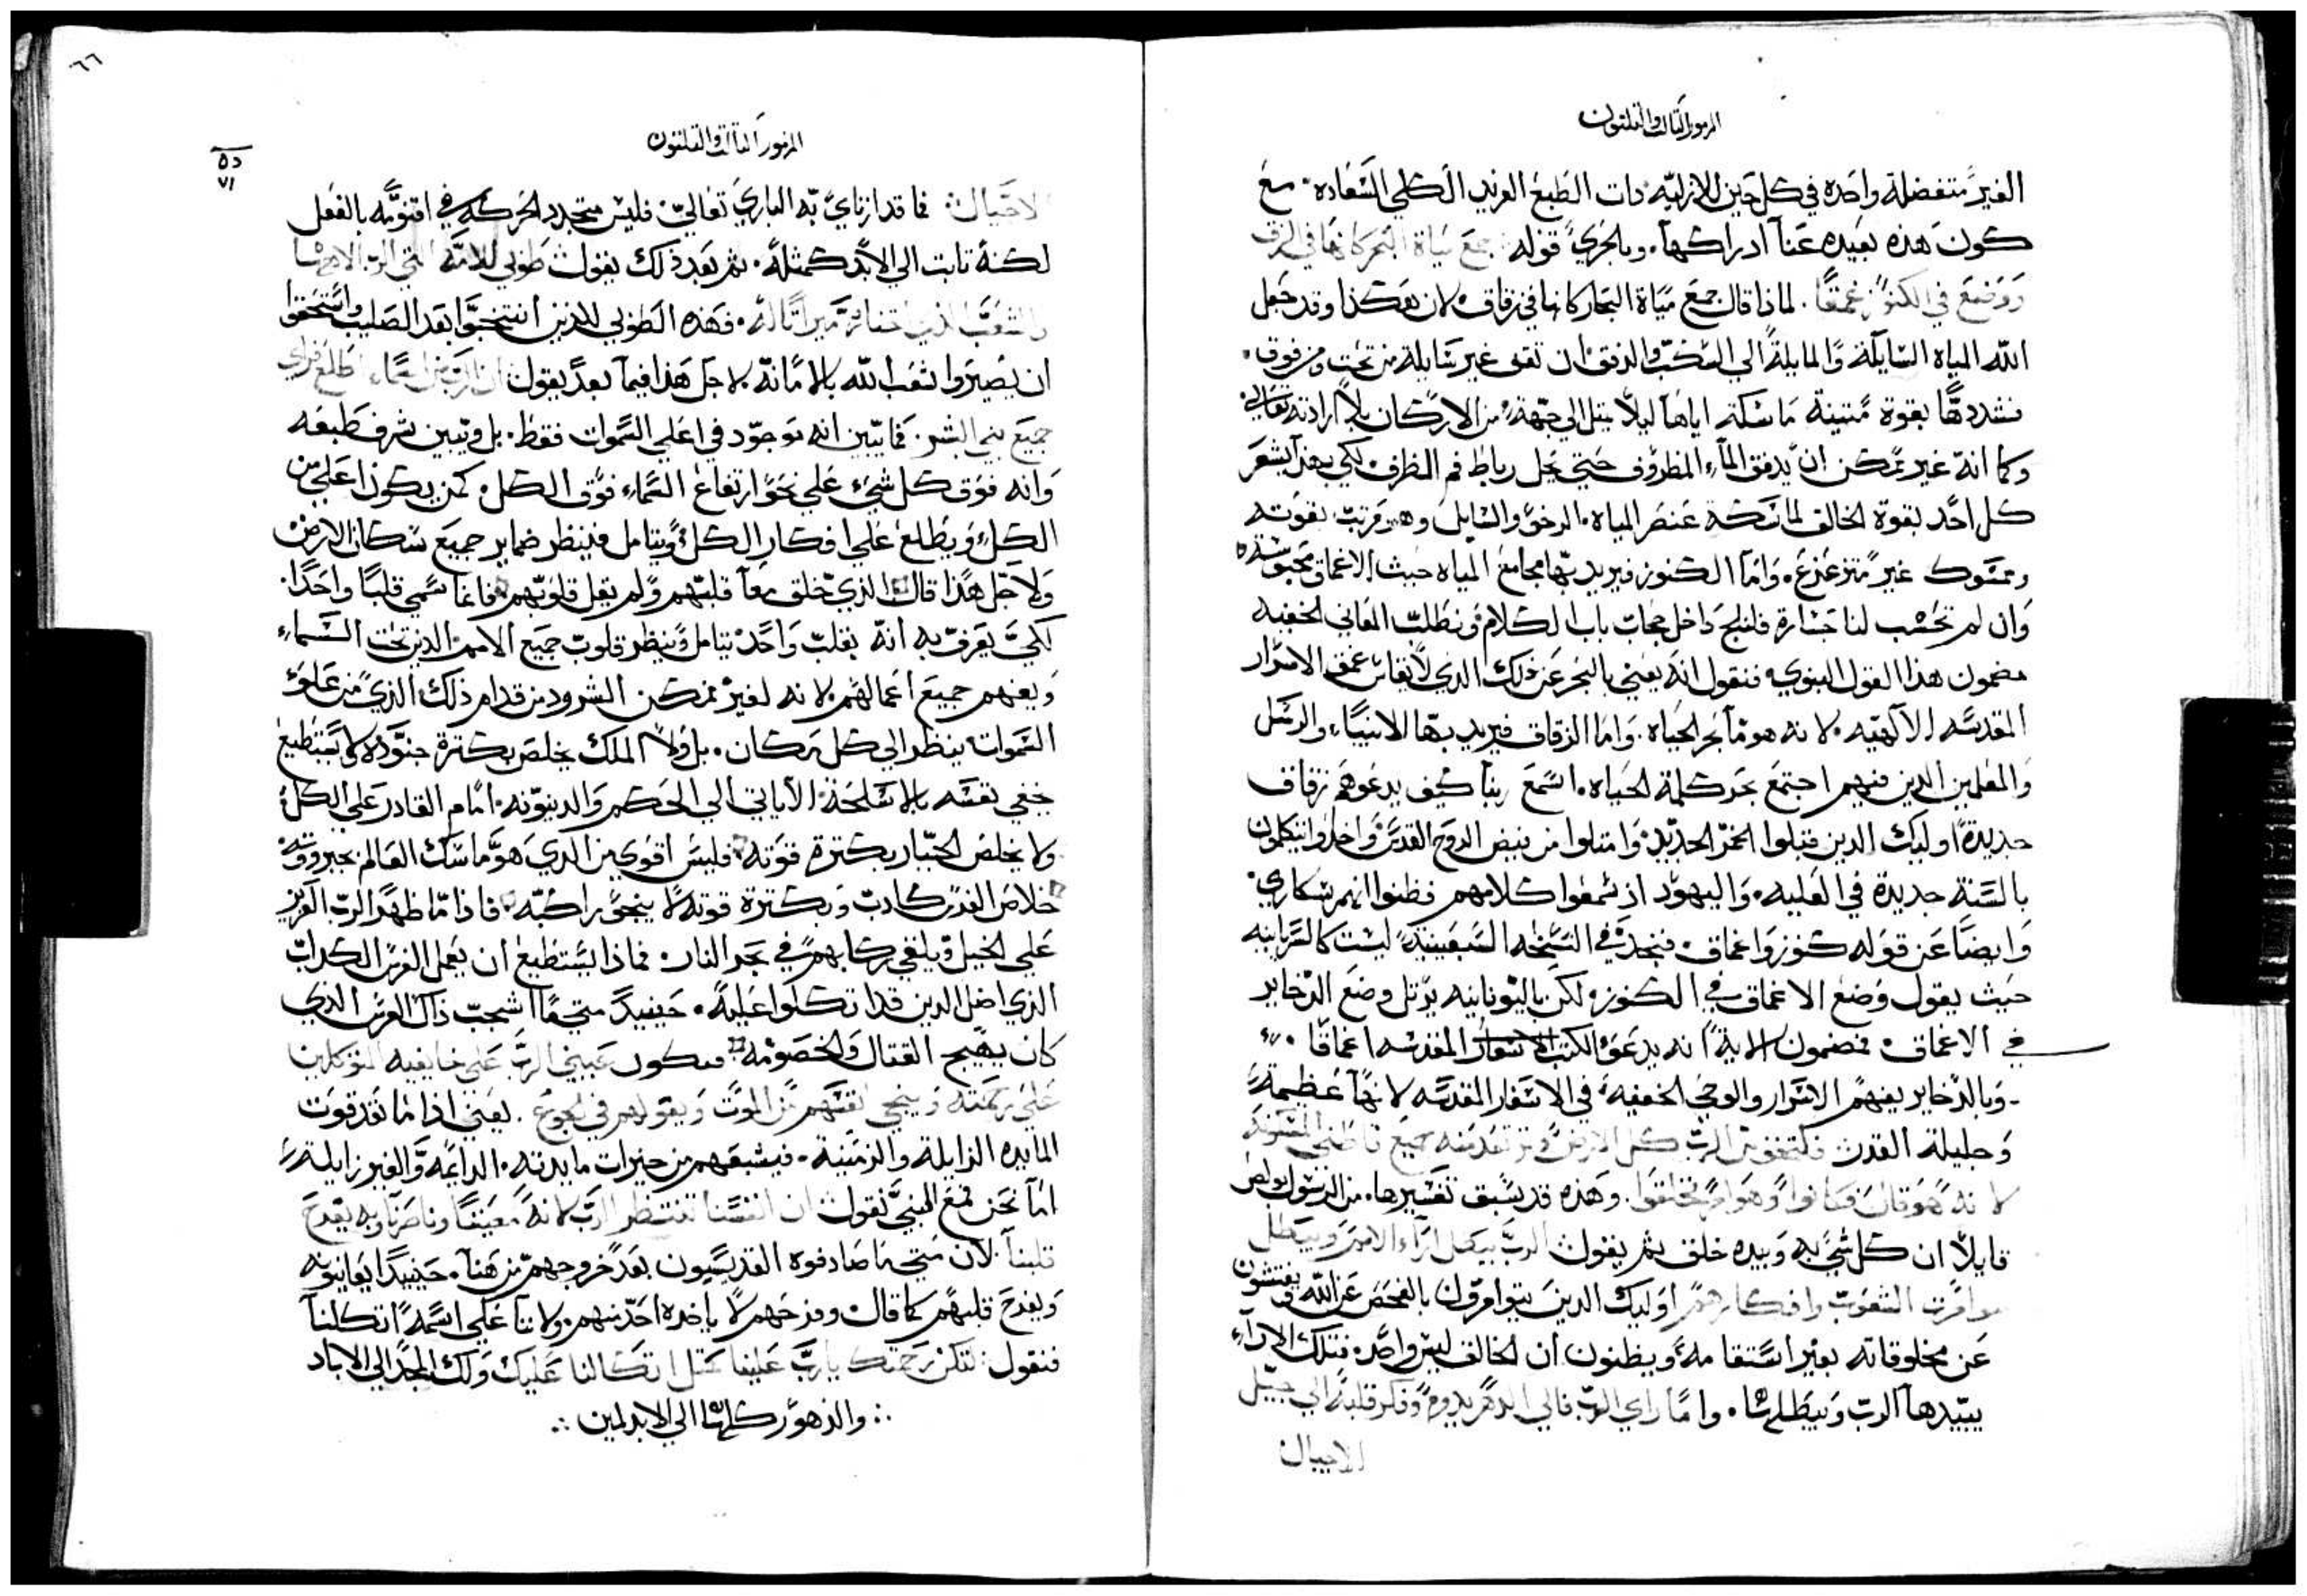 المزمور الثالث والثلثون
الغير متفضلة واحده في كل حين للازليه ذات الطبع الفريد الكلي السعاده. مع
كون هذه بعيده عنا ادراكها. وبالحري قوله جمع مياة البحر كانها في الزق
ووضع في الكنوز غمقا. لماذا قال جمع مياة البحار كانها في زقاق لان هكذا وقد جعل
الله المياه السايله والمايلة الي السكب والدفق ان تقف غير سايلة من تحت ومن فوق.
فشددها بقوة متينة ماسكة اياها ليلا يتل الي جهة من الاركان بلا ارادته تعالي
وكما انه غير ممكن ان يدفق الماء المظروف حتي يحل رباط فم الظرف. لكي بهذا يشعر
كل احد بقوة الخالق الماسكة عنصر المياه الرخو والسايل وهو مرتب بقوته
وممسوك غير متزعزع. واما الكنوز فيريد بها مجامع المياه حيث الاعماق محبوسة
وان لم تحسب لنا جسارة فلنلج داخل حجاب باب الكلام ونطلب المعاني الخفيه
مضمون هذا القول النبوي. فنقول انه يعني بالبحر عن ذلك الذي لا يقاس عمق الاسرار
المقدسه الالهيه. لانه هو ما بحر الحياه. واما الزقاق فيريد بها الانبياء والرسل
والمعلمين الذين فيهم اجتمع بحر كلمة الحياه. اسمع ربنا كيف يدعوهم زقاق
جديدة اوليك الدين قبلوا الخمر الجديد وامتلوا من فيض الروح القدس واخذوا يتكلمون
بالسنة جديدة في العليه. واليهود اذ سمعوا كلامهم فظنوا انهم سكاري.
وايضا عن قوله كنوز واغماق. فنجد في النسخه السبعينية ليست كالسريانيه
حيث يقول وضع الاغماق في الكنوز. لكن باليونانيه يرتل وضع الدخاير
في الاغماق. فمضمون الاية انه يدعو الكتب المقدسه اغماقا.
وبالدخاير يفهم الاسرار والوحي الخفيه في الاسفار المقدسه لانها عظيمة
وجليلة القدر فلتخف من الرب كل الارض وترتعد منه جميع قاطني المسكونه
لانه هو قال فكانوا وهو امر فخلقوا. وهذه قد سبق تفسيرها. من الرسول بولص
قايلا ان كل شي به وبيده خلق ثم يقول الرب يبطل اراء الامم ويبطل
موامرت الشعوب وافكارهم اوليك الدين يتوامرون بالفحص عن الله يفتشون
عن مخلوقاته بغير استقامة ويظنون ان الخالق ليس واحد. فتلك الاراء
يبيدها الرب ويبطلها. واما راي الرب فالي الدهر يدوم وفكر قلبه الي جيل
الاجيال
٦٦
المزمور الثالث والثلثون
الاجيال فما قد ارتاي به الباري تعالي. فليس متجدد الحركه في اقنومه بالفعل
لكنه ثابت الي الابد كمثله. ثم بعد ذلك يقول طوبي للامة التي الرب الاهها
والشعب الذي اختاره ميراثا له. فهذه الطوبي للذين انتخبوا بعد الصليب واستحقوا
ان يصيروا شعب الله بالامانة. لاجل هذا فيما بعد يقول ان الرب من السماء اطلع فراي
جميع بني البشر. فما تبين انه موجود في اعلي السموات فقط. بل وتبين شرف طبعه
وانه فوق كل شيء علي نحو ارتفاع السماء فوق الكل. كمن يكون اعلي من
الكل ويطلع علي افكار الكل ويتامل فينظر ضماير جميع سكان الارض
ولاجل هذا قال الذي خلق معا قلبهم ولم يقل قلوبهم. فانما سمي قلبا واحدا.
لكي يعرف به انه بقلب واحد يتامل وينظر قلوب جميع الامم الذين تحت السماء
ويفهم جميع اعمالهم. لانه لغير ممكن الشرود من قدام ذلك الذي من علو
السموات ينظر الي كل مكان. بل ولا الملك يخلص بكثرة جنوده لا يستطيع
يخفي نفسه بالاسلحة الاياتي الي الحكم والدينونه. امام القادر علي الكل
ولا يخلص الجبار بكثرة قوته. فليس اقوي من الذي هو ماسك العالم بجبروته
خلاص الفرس كادب وبكثرة قوته لا ينجو راكبه. فاذا ما ظهر الرب العزيز
علي الخيل ويلقي ركابهم في بحر النار. فماذا يستطيع ان يعمل الفرس الكداب
الذي اضل الدين قد اتكلوا عليه. حينيد متي ما اشجب ذاك الفرس الذي
كان يهيج القتال والخصومه. فيكون عيني الرب علي خايفيه المتوكلين
علي رحمته وينجي نفسهم من الموت ويقولهم في الجوع. يعني اذا ما نفد قوت
المايده الزايله والزمنية. فيشبعهم من خيرات مايدته الدايمه والغير زايلة
اما نحن فمع النبي نقول ان انفسنا تنتظر الرب لانه معيننا وناصرنا وبه يفرح
قلبنا لان متي ما صادفوه القديسيون بعد خروجهم من هنا. حينيدا يعاينونه
ويفرح قلبهم كما قال وفرحهم لا ياخده احد منهم. ولاننا علي اسمه اتكلنا
فنقول لتكن رحمتك يارب علينا كمثل اتكالنا عليك ولك المجد الي الاباد
والدهور كلها الي الابد امين